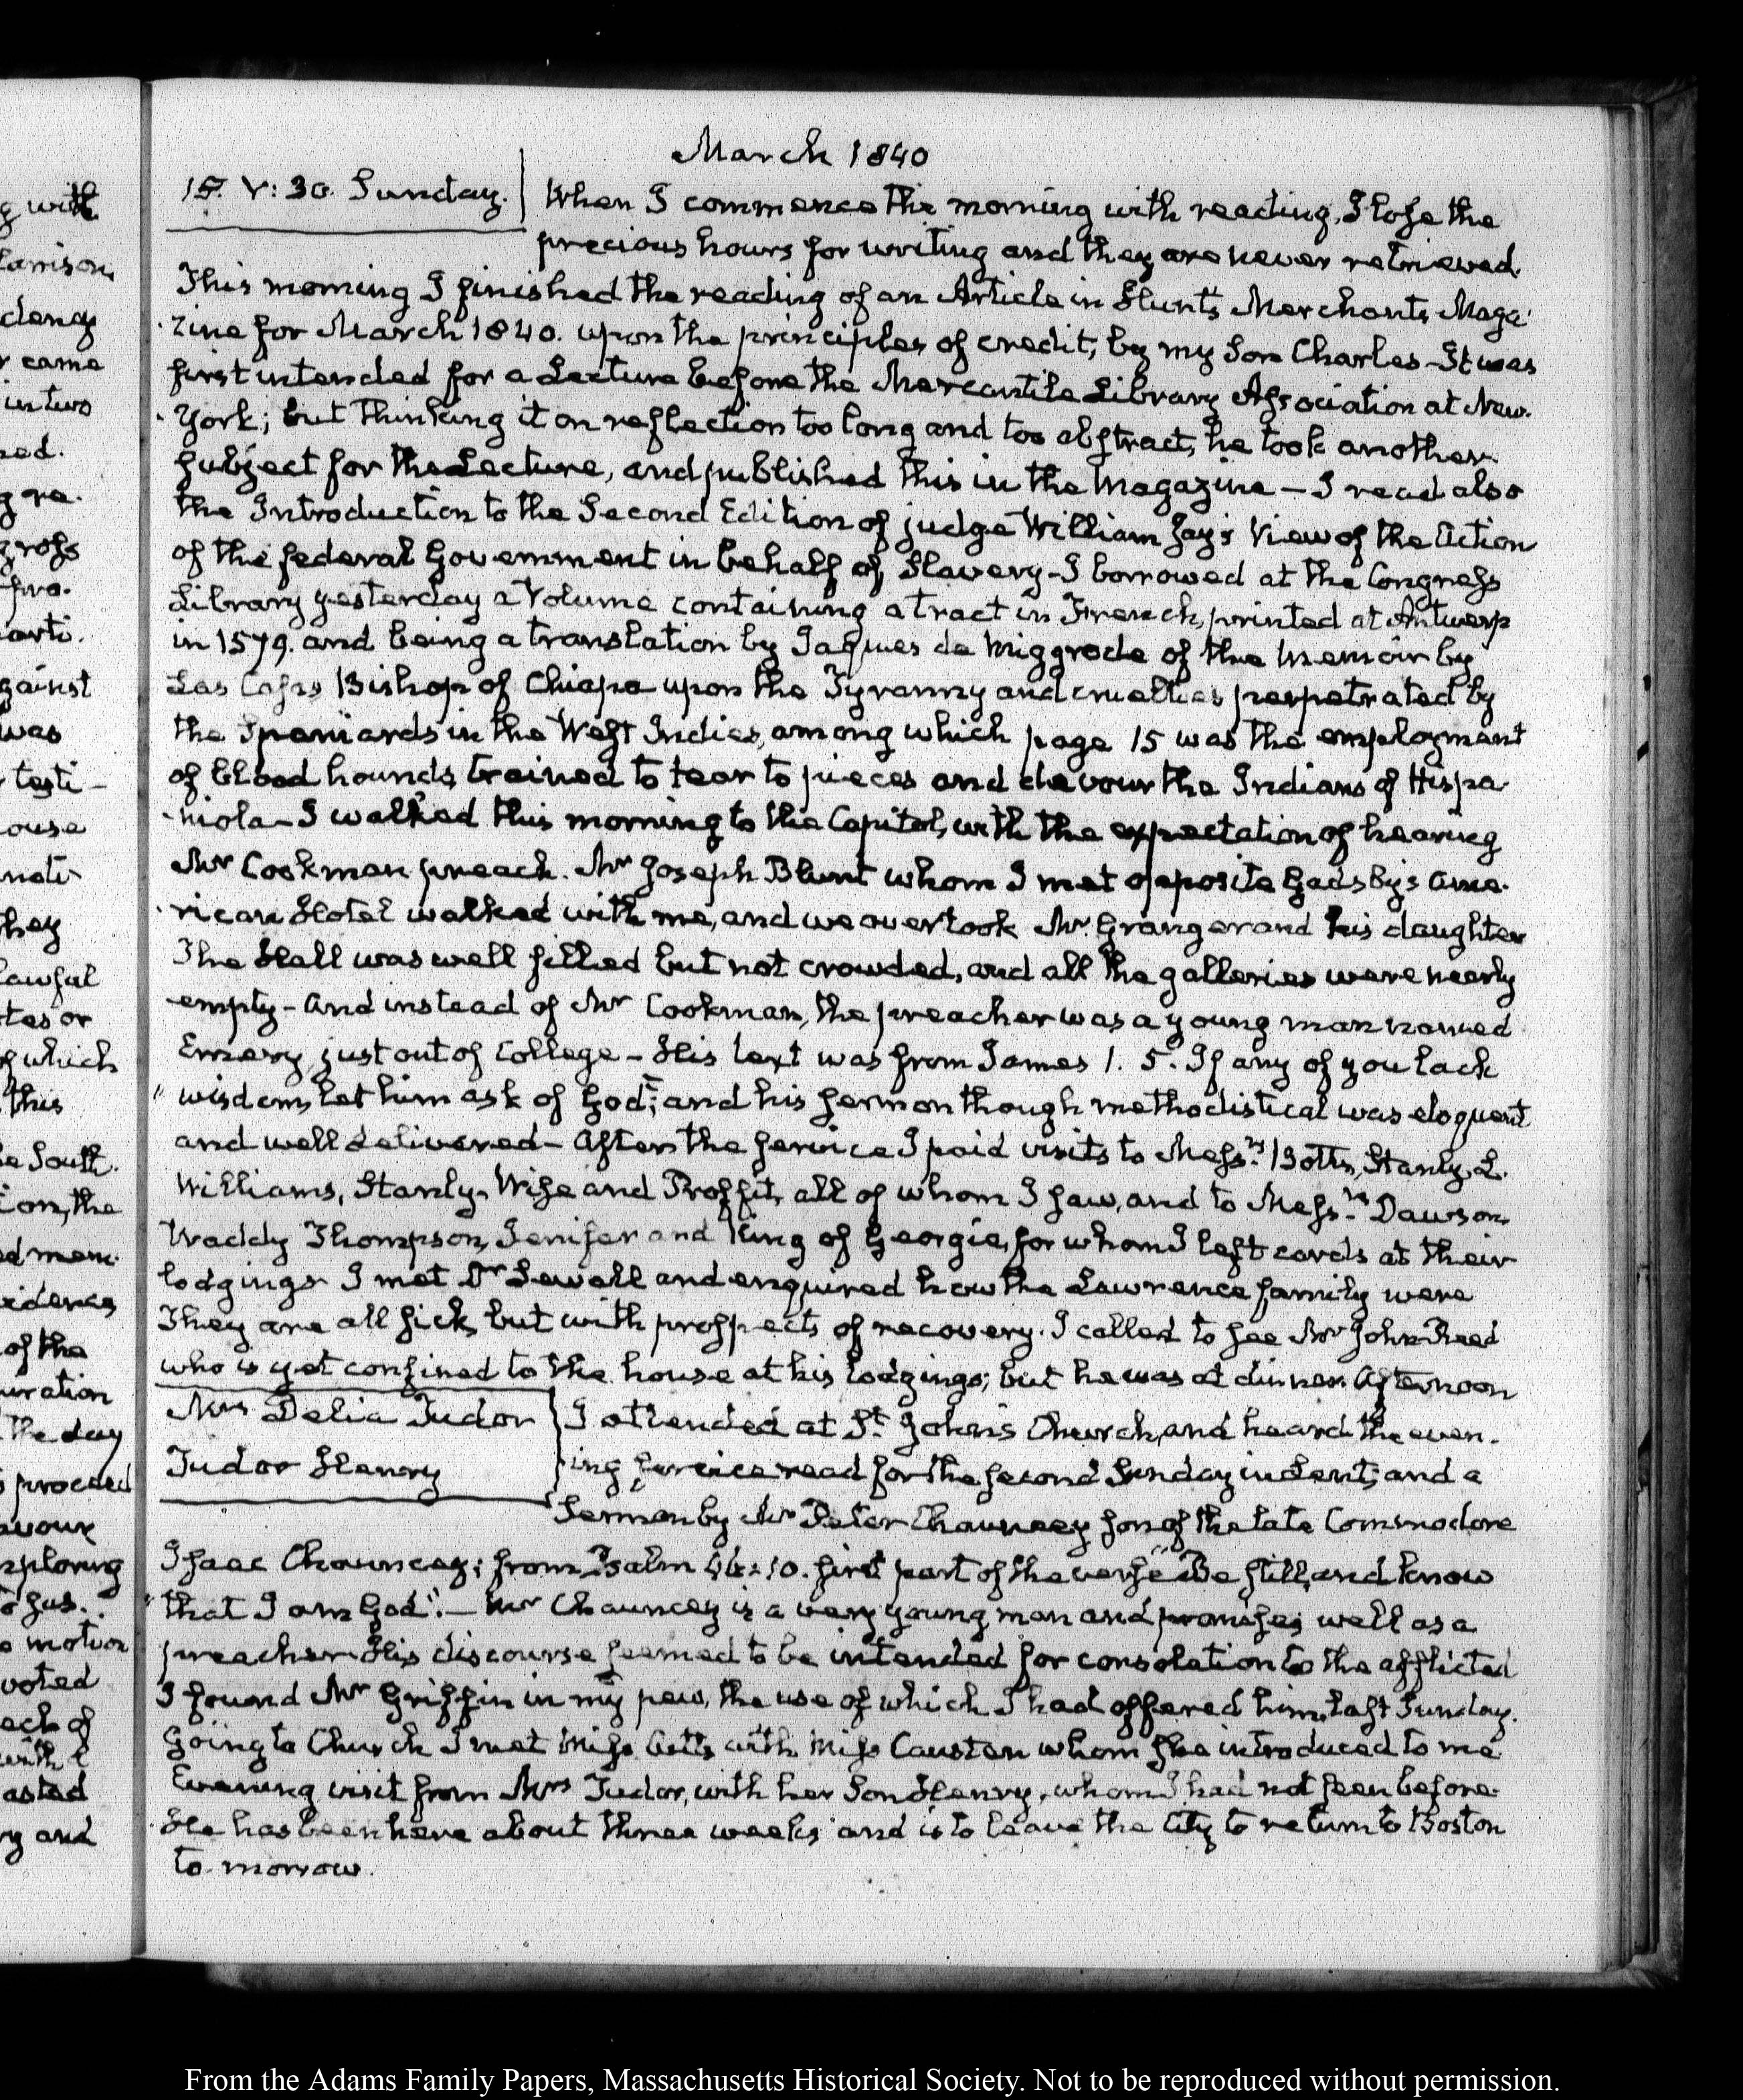 March 1840
15. V:30. Sunday. When I commence the morning with reading, I lose the
precious hours for writing and they are never retrieved.
This morning I finished the reading of an Article in Hunt's Merchants Maga-
zine for March 1840. upon the principles of credit, by my Son Charles - It was
first intended for a Lecture before the Mercantile Library Association at New-
York; but thinking it on reflection too long and too abstract, he took another
subject for the Lecture, and published this in the Magazine — I read also
the Introduction to the Second Edition of judge William Jay's View of the Action
of the federal Government in behalf of Slavery - I borrowed at the Congress
Library yesterday a Volume containing a tract in French, printed at Antwerp
in 1579. and being a translation by Jaques de Miggrode of the Memoir by
Las Casas Bishop of Chiapa upon the Tyranny and cruelties perpetrated by
the Spaniards in the West Indies, among which page 15 was the employment
of blood hounds, trained to tear to pieces and devour the Indians of Hispa-
niola - I walked this morning to the Capitol, with the expectation of hearing
Mr Cookman preach. Mr Joseph Blunt whom I met opposite Gadsby's Ame-
rican Hotel walked with me, and we overtook Mr Granger and his daughter
The Hall was well filled but not crowded, and all the galleries were nearly
empty - and instead of Mr Cookman, the preacher was a young man named
Emery, just out of College - His text was from James 1. 5. If any of you lack
" wisdom, let him ask of God"; and his sermon though methodistical was eloquent
and well delivered - After the service I paid visits to Messrs Botts, Stanly, L.
Williams, Stanly, Wise and Proffit, all of whom I saw, and to Messrs Dawson,
Waddy Thompson, Jenifer and King of Georgia, for whom I left cards at their
lodgings - I met Dr Sewall and enquired how the Lawrence family were
They are all sick, but with prospects of recovery. I called to see Mr John Reed
who is yet confined to the house at his lodgings; but he was at dinner. Afternoon
Mrs Delia Tudor I attended at St John's Church, and heard the even-
Tudor Henry ing service read for the second Sunday in Lent; and a
Sermon by Mr Peter Chauncey son of the late Commodore
Isaac Chauncey; from Psalm 46:10. first part of the verse "Be still, and know
" that I am God". — Mr Chauncey is a very young man and promises well as a
preacher. His discourse seemed to be intended for consolation to the afflicted
I found Mr Griffin in my pew, the use of which I had offered him last Sunday.
Going to Church I met Miss Cutts with Miss Causten whom she introduced to me
Evening visit from Mrs Tudor, with her Son Henry, whom I had not seen before.
He has been here about three weeks and is to leave the City to return to Boston
to-morrow.
From the Adams Family Papers, Massachusetts Historical Society. Not to be reproduced without permission.